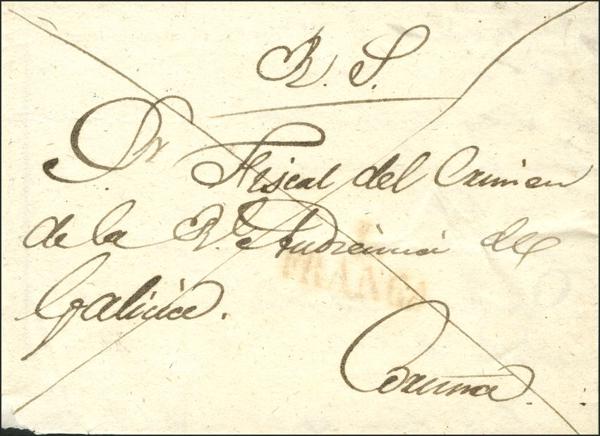 R. S.
Sr Fiscal del Crimen
de la Rl Audiencia de
Galicia.
Coruña